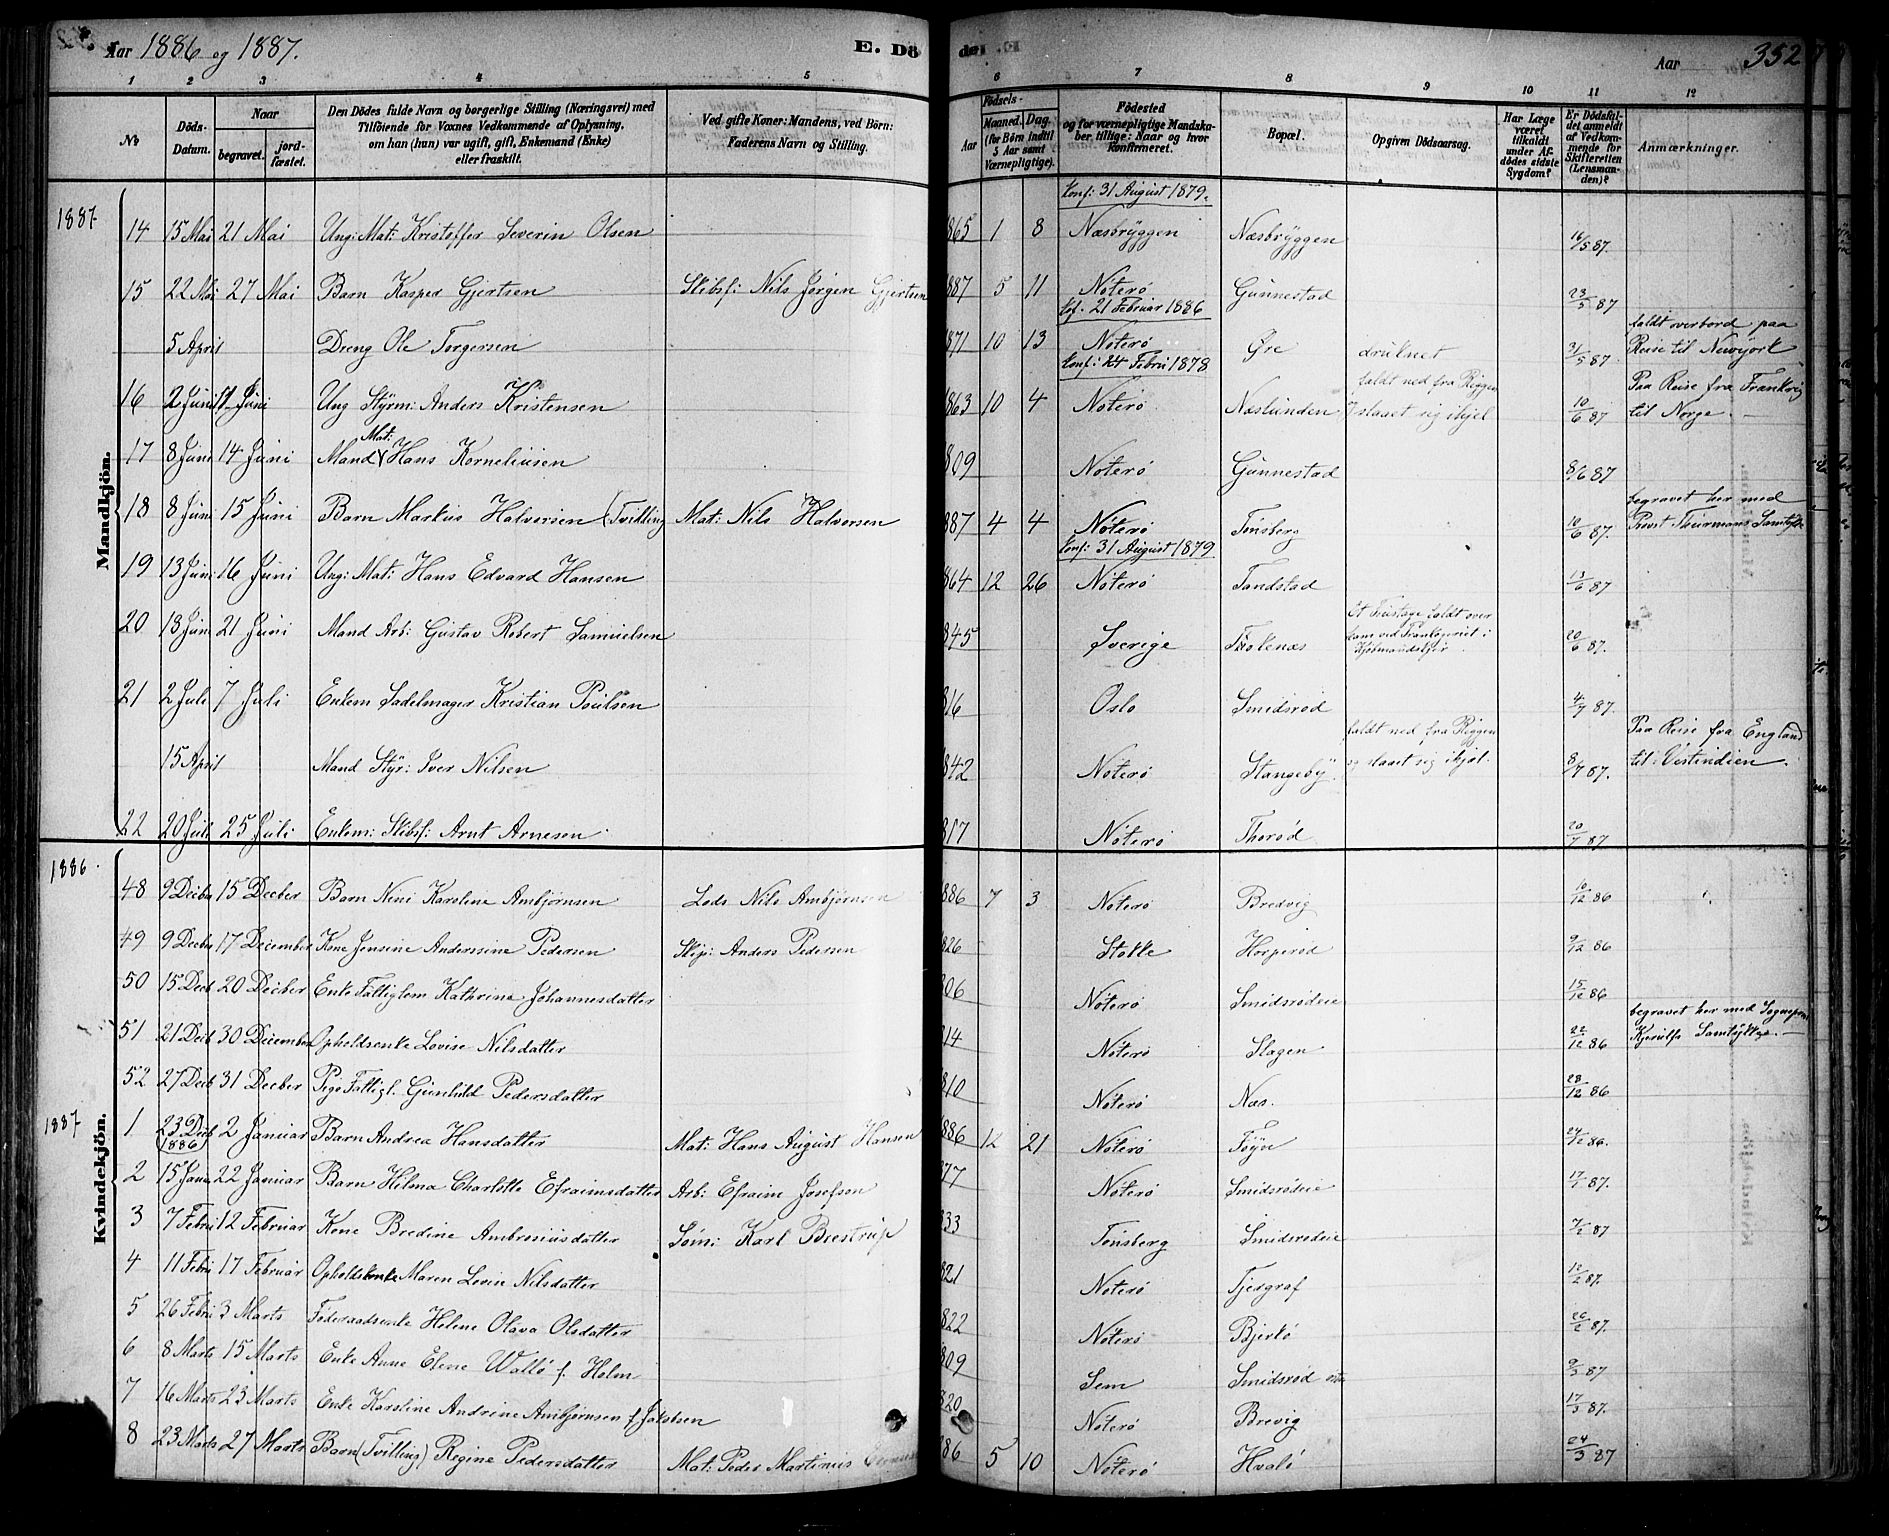 Aar 1886 og 1887.
E. Dö
de.
Aar 352
1 2 3 4 5 6 7 8 9 10 11 12
No
Döds-Datum.
Naar begravet. jordfæstet.
Den Dödes fulde Navn og borgerlige Stilling (Næringsvei) med Tilföiende for Voxnes Vedkommende af Oplysning, om han (hun) var ugift, gift, Enkemand (Enke) eller fraskilt.
Ved gifte Koner: Mandens, ved Börn: Faderens Navn og Stilling.
Födsels-
Aar Maaned. Dag. (for Börn indtil 5 Aar samt Værnepligtige).
Födested og for værnepligtige Mandskaber, tillige: Naar og hvor konfirmeret.
Bopæl.
Opgiven Dödsaarsag.
Har Læge været tilkaldt under Afdödes sidste Sygdom?
Er Dödsfaldet anmeldt af Vedkommende for Skifteretten (Lensmanden)?
Anmærkninger.
Mandkjön.
1887
Konf: 31 August 1879.
14 15 Mai 21 Mai Ung: Mat: Kristoffer Severin Olsen 865 1 8 Næsbryggen Næsbryggen 16/5 87.
15 22 Mai 27 Mai Barn Kasper Gjertsen Skibsf: Nils Jørgen Gjertsen 887 5 11 Noterø Gunnestad 23/5 87
Kof. 21 Februar 1886
5 April Dreng Ole Torgersen 871 10 13 Noterø Øre druknet 31/5 87. faldt overbord paa Reise til Newyork
Konf: 24 Febru 1878
16 2 Juni 11 Juni Ung Styrm: Anders Kristensen 863 10 4 Noterø Næslunden faldt ned fra Riggen og slaaet sig ihjel 10/6 87 Paa Reise fra Frankrig til Norge.
17 8 Juni 14 Juni Mand Mat: Hans Korneliusen 809 Noterø Gunnestad 8/6 87
18 8 Juni 15 Juni Barn Markus Halvorsen (Tvilling Mat: Nils Halvorsen 887 4 4 Noterø Tønsberg 10/6 87. begravet her med Provst Thurmans Samtykke
Konf: 31 August 1879
19 13 Juni 16 Juni Ung: Mat: Hans Edvard Hansen 864 12 26 Noterø Tandstad 13/6 87
20 18 Juni 21 Juni Mand Arb: Gustav Robert Samuelsen 845 Sverige Tholenæs Et Fustage faldt over ham ved Trankogeriet i Kjøbmandskjær 20/6 87.
21 2 Juli 7 Juli Enkem Sadelmager Kristian Poulsen 816 Oslo Smidsrød 4/7 87.
15 April Mand Styr: Iver Nilsen 842 Noterø Stangeby faldt ned fra Riggen og slaaet sig ihjel. 8/7 87. Paa Reise fra England til Vestindien.
22 20 Juli 25 Juli Enkem: Skibsf: Arnt Arnesen 817 Noterø Thorød 20/7 87
Kvindekjön.
1886.
48 9 Decbr 15 Decber Barn Nini Karoline Ambjørnsen Lods Nils Ambjørnsen 886 7 3 Noterø Bredvig 10/12 86
49 9 Decbr 17 December Kone Jensine Anderssine Pedersen Skip: Anders Pedersen 826 Stokke Horperød 9/12 86
50 15 Decb 20 Decber Enke Fattiglem Kathrine Johannesdatter 806 Noterø Smidsrødeie 15/12 86
51 21 Decb 30 December Opholdsenke Lovise Nilsdatter 814 Noterø Slagen 22/12 86 begravet her med Sognepræst Kjerulfs Samtykke.
52 27 Decb 31 Decber Pige Fattigl. Gunhild Pedersdatter 810 Noterø Næs. 28/12 86
1887
1 23 Decb (1886) 2 Januar Barn Andrea Hansdatter Mat: Hans August Hansen 886 12 21 Noterø Føyn 24/12 86.
2 15 Janu 22 Januar Barn Hilma Charlotte Efraimsdatter Arb: Efraim Josefson 877 Noterø Smidsrødeie 17/1 87.
3 7 Febru 12 Februar Kone Bredine Ambrosiusdatter Søm: Karl Brestrup 833 Tønsberg Smidsrødeie 7/2 87
4 11 Febru 17 Februar Opholdsenke Maren Lovise Nilsdatter 821 Noterø Tjersgraf 12/2 87.
5 26 Febru 3 Marts Føderaadsenke Helene Olava Olsdatter 822 Noterø Bjerkø 26/2 87.
6 8 Marts 15 Marts Enke Anne Elene Wallø f. Holm 809 Sem Smidsrød 9/3 87
7 16 Marts 23 Marts Enke Karoline Andrine Ambjørnsen f. Jakobsen 820 Noterø Brevig 17/3 87.
8 23 Marts 27 Marts Barn (Tvilling) Regine Pedersdatter Mat: Peder Martinus 886 5 10 Noterø Hvalø 24/3 87